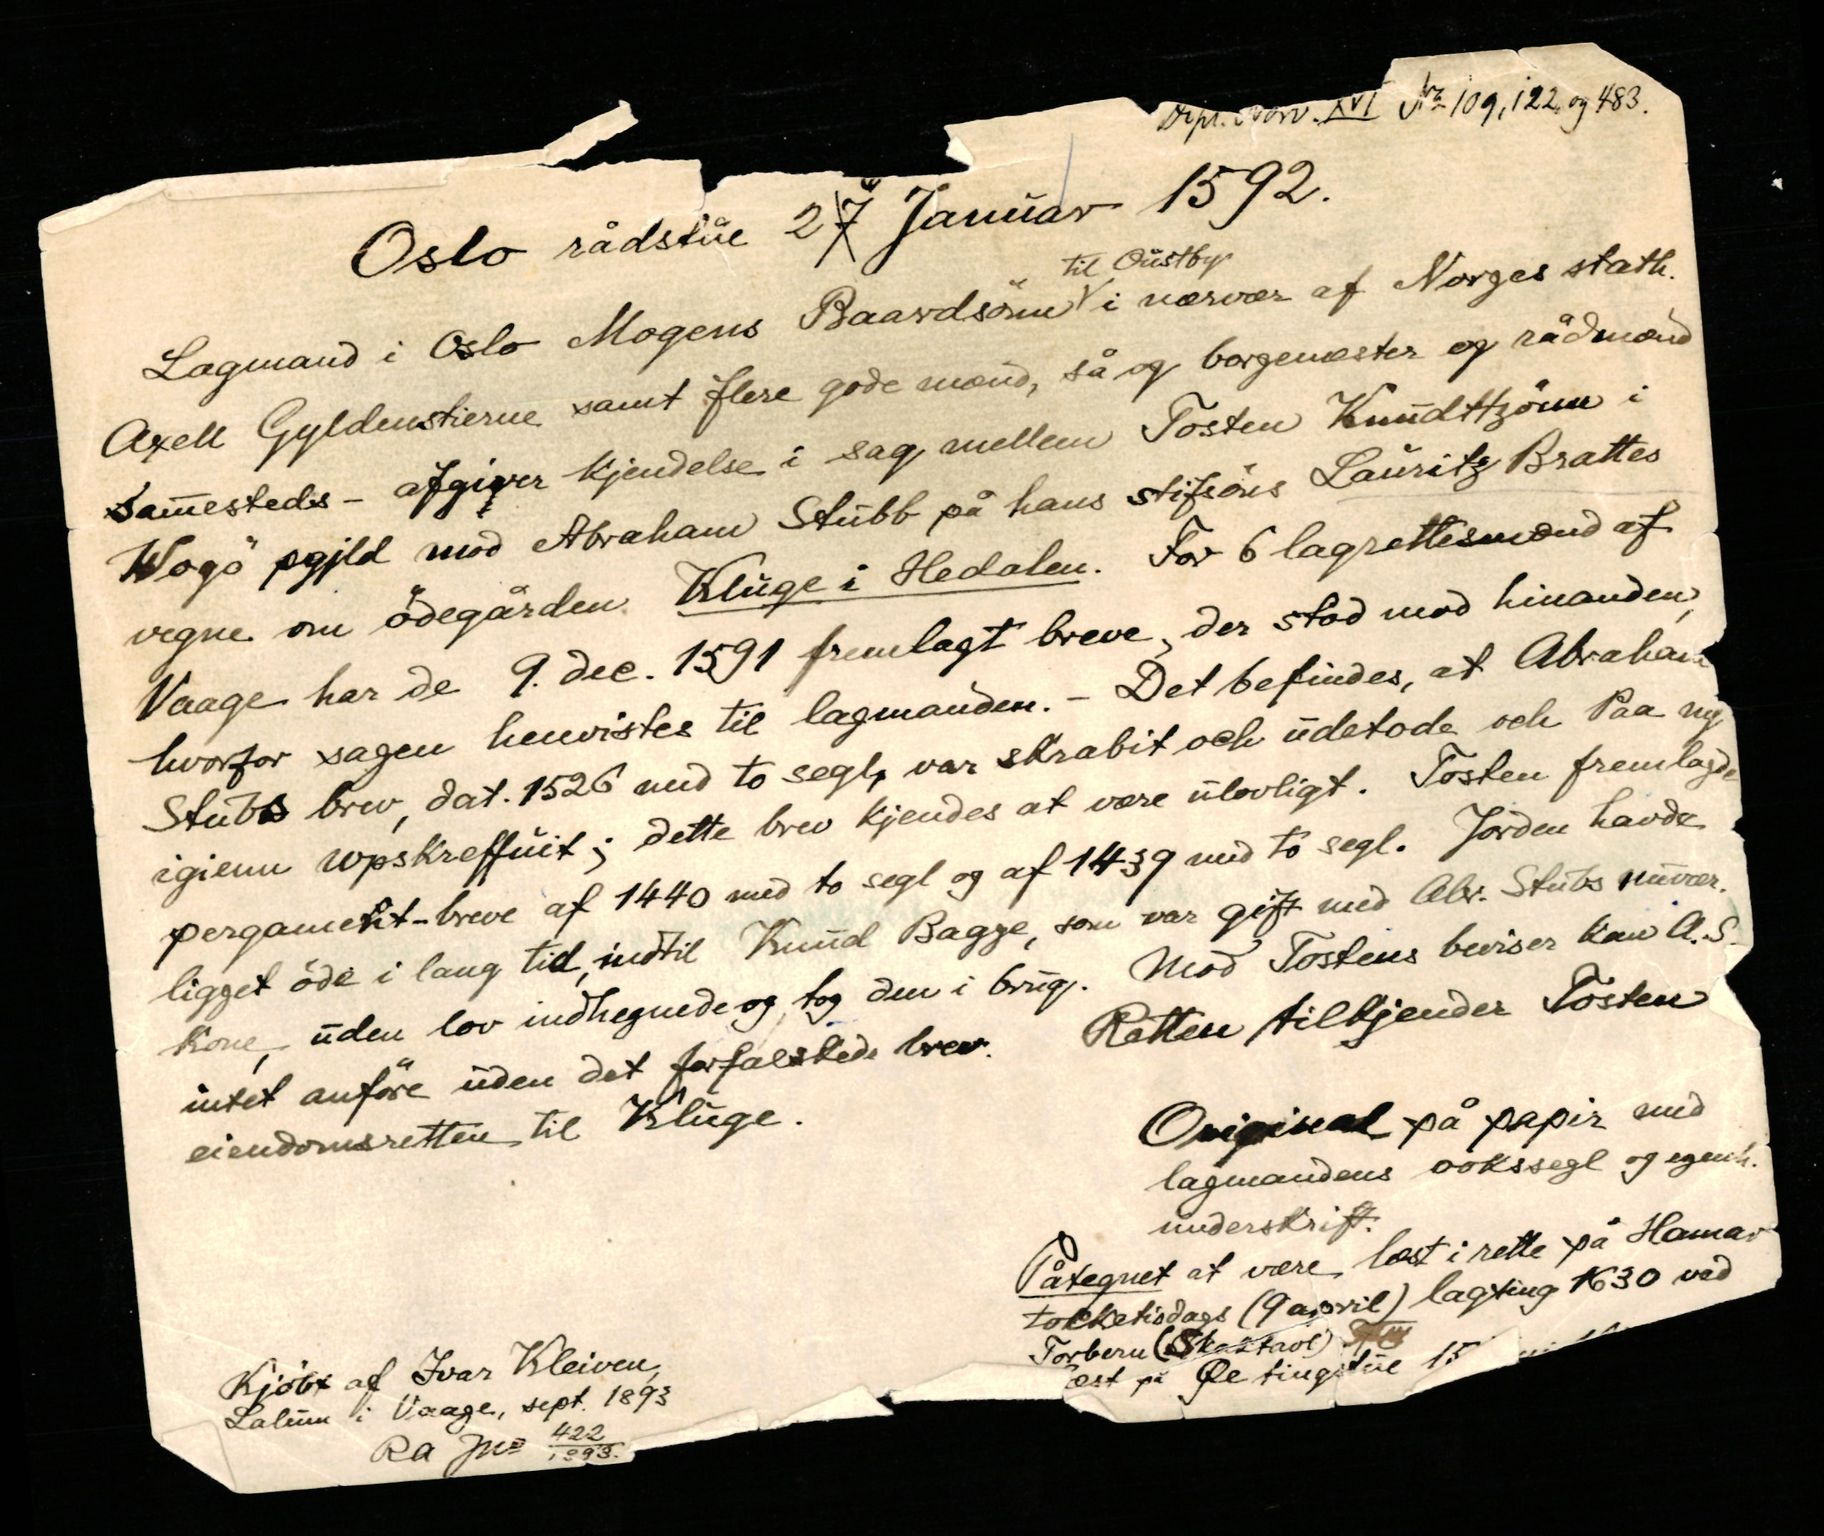 Dipl. Norv. XVI No 109, 122, og 483.
Oslo rådstue 27 Januar 1592.
til Oustby
Lagmand i Oslo Mogens Baardsönn i nærvær af Norges stath.
Axell Gyldenstierne samt flere gode mænd, så og borgemester og rådmænd
sammesteds – afgiver kjendelse i sag mellem Tosten Knudttzönn i
Wogö pgjld mod Abraham Stubb på hans stifsöns Lauritz Brattes
vegne om ödegården Kluge i Hedalen. For 6 lagrettesmænd af
Vaage har de 9. dec. 1591 fremlagt breve, der stod mod hinanden,
hvorfor sagen henvistes til lagmanden. – Det befindes, at Abraham
Stubs brev, dat. 1526 med to segl, var skrabit och udetode och paa ny
igienn wpskreffuit; dette brev kjendes at være ulovligt. Tosten fremlagde
pergament-breve af 1440 med to segl og af 1439 med to segl. Jorden havde
ligget öde i lang tid, indtil Knud Bagge, som var gift med Abr. Stubs nuvær.
kone, uden lov indhegnede og tog den i brug. Mod Tostens beviser kan A. S.
intet anföre uden det forfalskede brev. Retten tilkjender Tosten
eiendomsretten til Kluge.
Original på papir med
lagmandens vokssegl og egenh.
underskrift.
Påtegnet at være læst i rette på Hamar
tolketisdags (9 april) lagting 1630 ved
Torbern (Skaktavl)
læst på Øe tingstue 15
Kjöbt af Ivar Kleiven,
Lalum i Vaage, sept. 1893
RA Jno 422/1893.